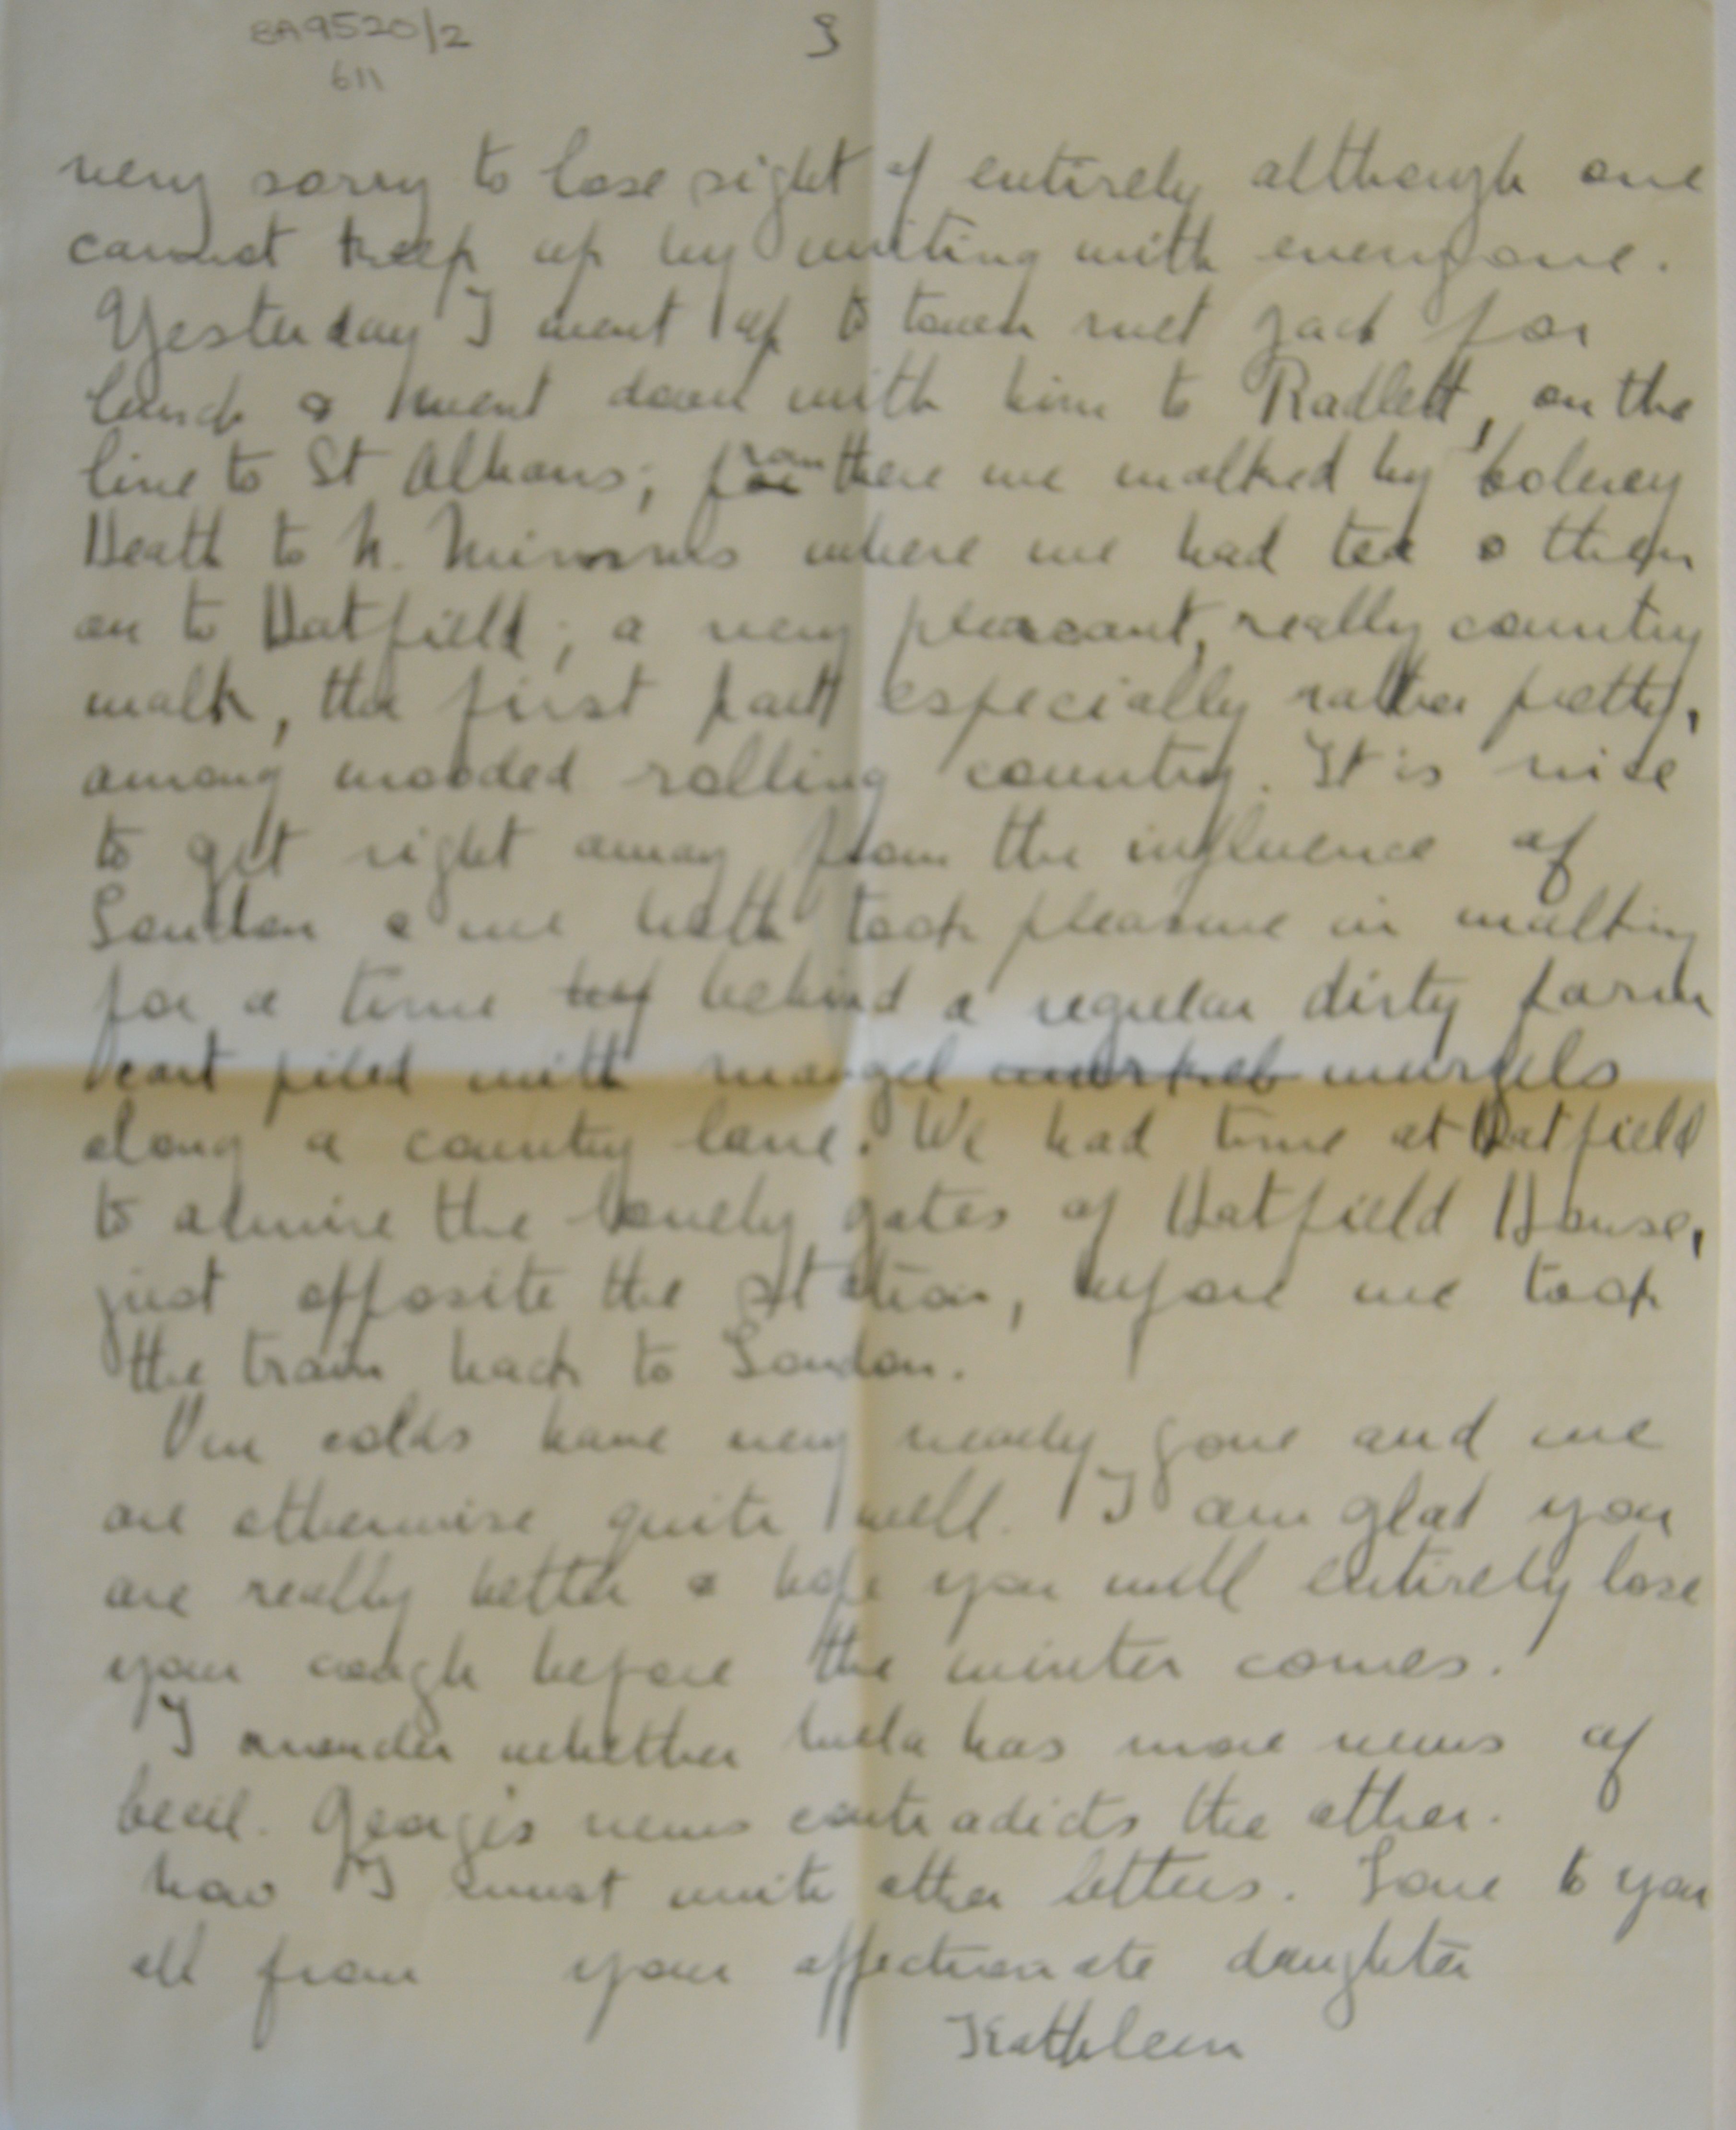 BA9520/2
611
3
very sorry to lose sight of entirely although one
cannot keep up by writing with everyone.
Yesterday I went up to town met Jack for
lunch & went down with him to Radlett, on the
line to St Albans; from there we walked by Colney
Heath to N. Mimms where we had tea & then
on to Hatfield; a very pleasant, really country
walk, the first part especially rather pretty,
among wooded rolling country. It is nice
to get right away from the influence of
London & we both took pleasure in walking
for a time behind a regular dirty farm
cart piled with mangel wurzels
along a country lane. We had time at Hatfield
to admire the lovely gates of Hatfield House,
just opposite the station, before we took
the train back to London.
Our colds have very nearly gone and we
are otherwise quite well. I am glad you
are really better & hope you will entirely lose
your cough before the winter comes.
I wonder whether has more news of
Cecil. George's news contradicts the other.
Now I must write other letters. Love to you
all from your affectionate daughter
Kathleen